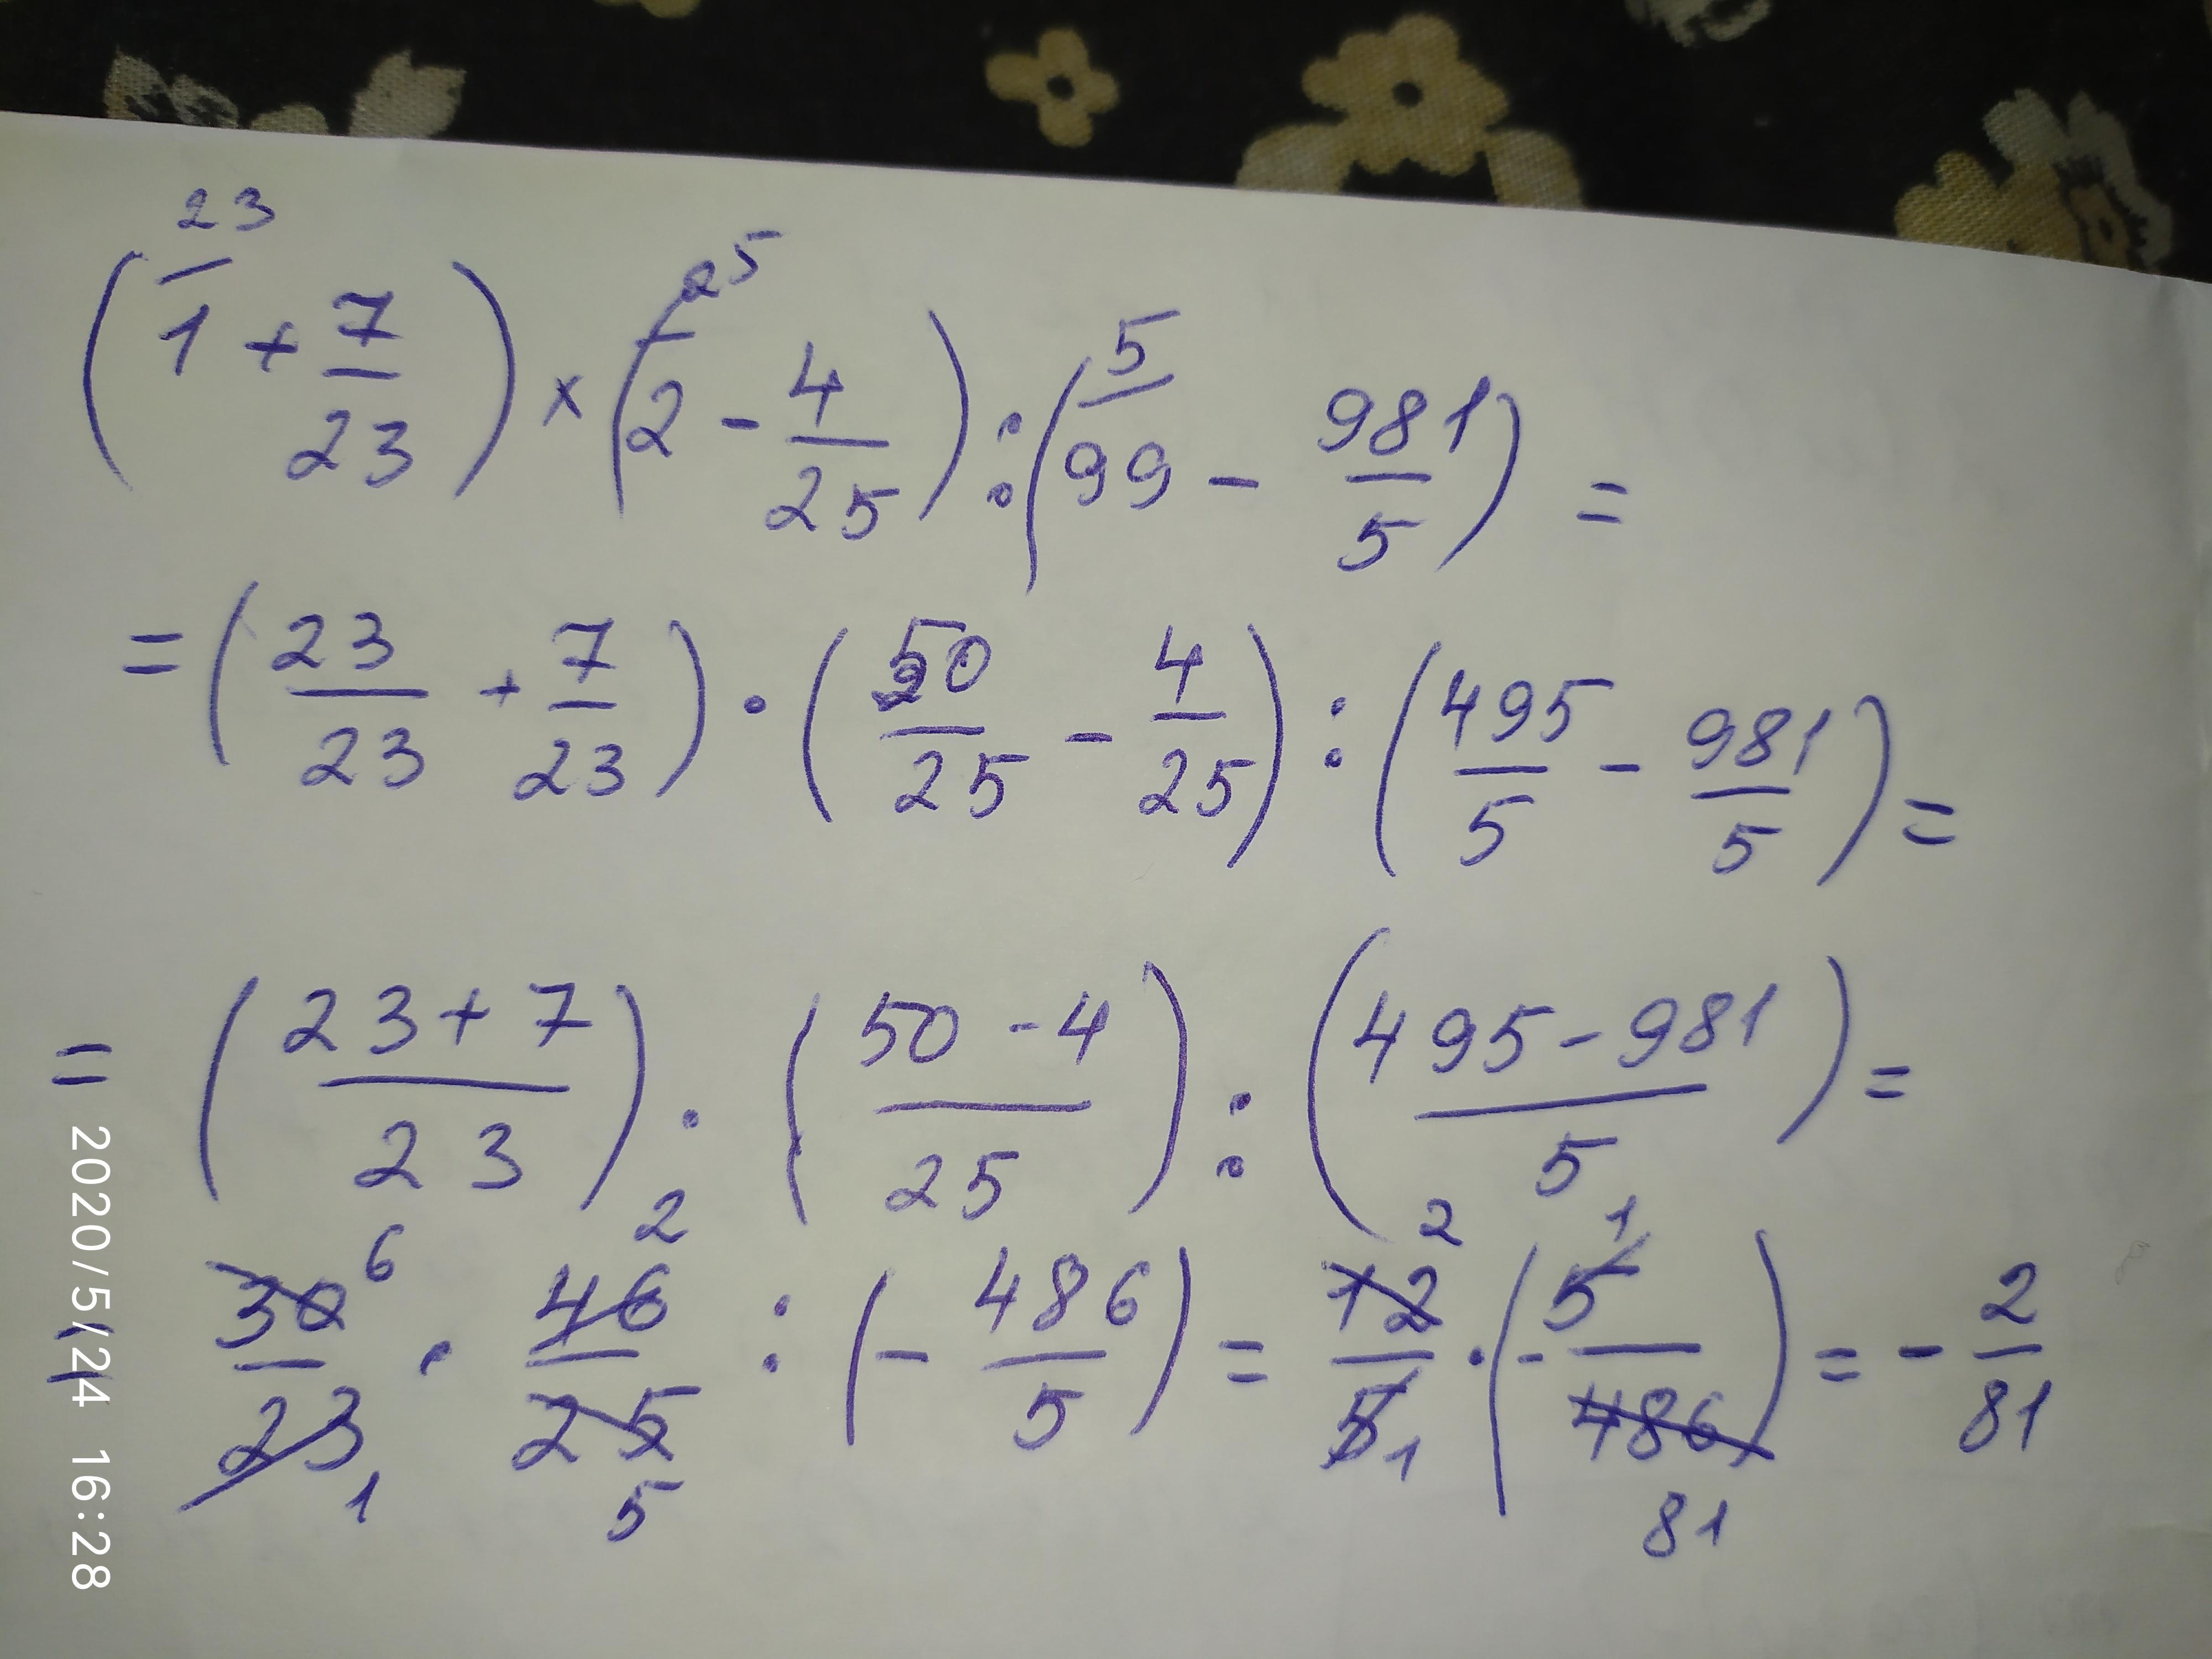 (1 23 + 7/23) × (2 25 - 4/25) : (99 5 - 981/5) =
= (23/23 + 7/23) · (50/25 - 4/25) : (495/5 - 981/5) =
= (23+7/23) · (50-4/25) : (495-981/5) =
= 30 6/23 1 · 46 2/25 5 : (- 486/5) = 12 2/5 1 · (- 5 1/486 81) = - 2/81
2020/5/24 16:28